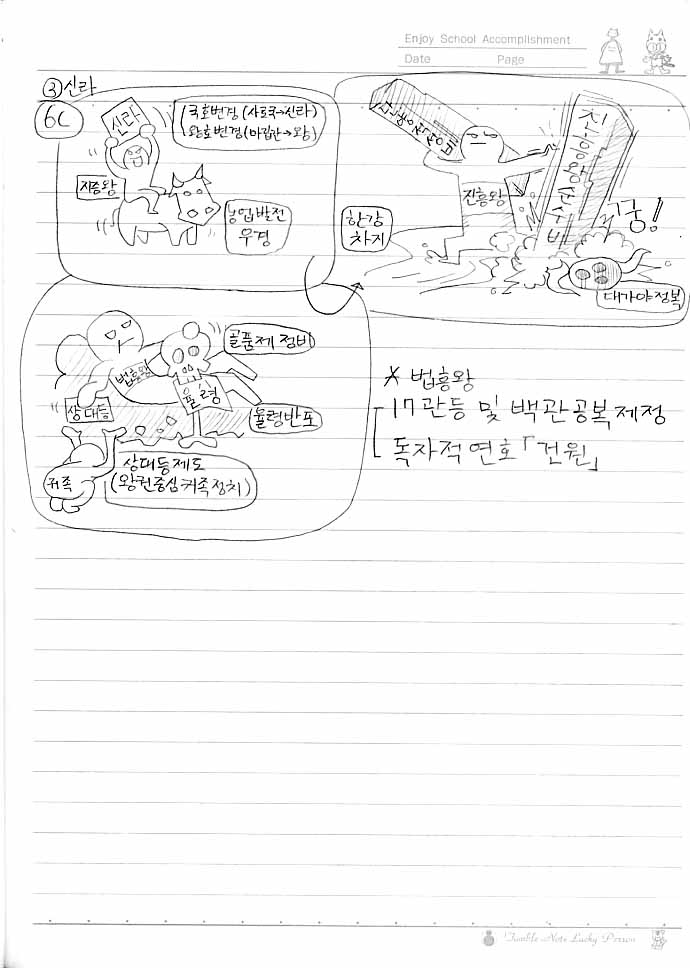 Enjoy School Accomplishment
Date Page
③신라
6C
신라
국호변경 (사로국→신라)
왕호변경 (마립간→왕)
지증왕
농업발전
우경
진흥왕순수비
진흥왕
한강
차지
쿵!
대가야정복
골품제 정비
법흥왕
율령
상대등
율령반포
귀족
상대등제도
(왕권중심귀족정치)
* 법흥왕
17관등 및 백관공복제정
독자적연호「건원」
Tumble Note Lucky Person